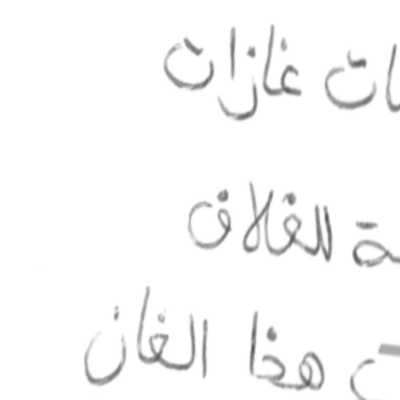 غازات
للغلاف
هذا الغاز